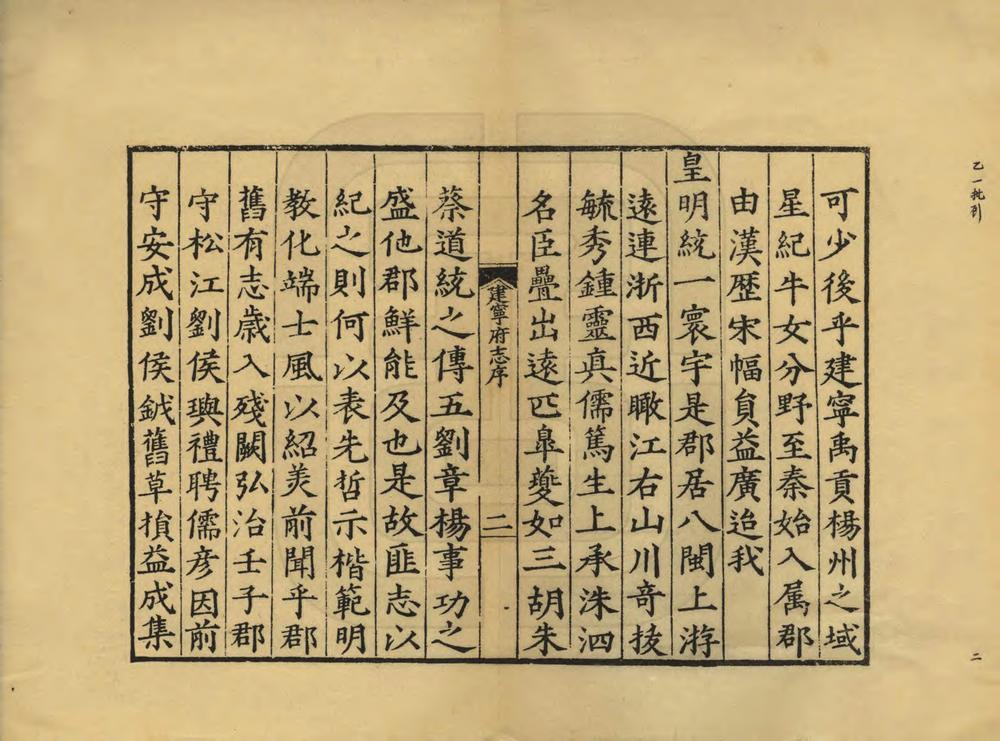 可少後乎建寧禹貢楊州之域
星紀牛女分野至秦始入属郡
由漢歴宋幅員益廣迨我
皇明統一寰宇是郡居八閩上游
逺連浙西近瞰江右山川竒抜
毓秀鍾靈真儒篤生上承洙泗
名臣疊出逺匹臯夔如三胡朱
建寧府志序
二
蔡道統之傳五劉章楊事功之
盛他郡鮮能及也是故匪志以
紀之則何以表先哲示楷範明
教化端士風以紹美前聞乎郡
舊有志歲入殘闕弘治壬子郡
守松江劉侯璵禮聘儒彦因前
守安成劉侯鉞舊草損益成集
乙一批列
二